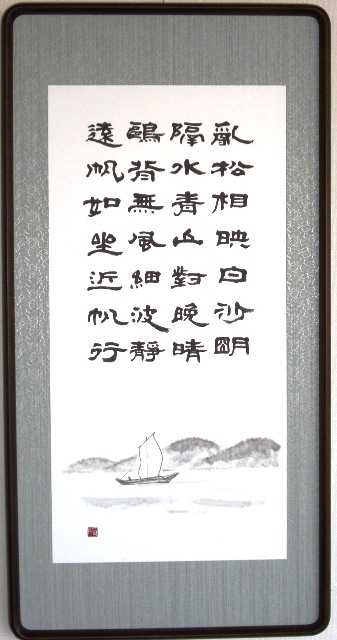 亂松相映白沙明
隔水青山對晚晴
鷗背無風細波靜
遠帆如坐近帆行